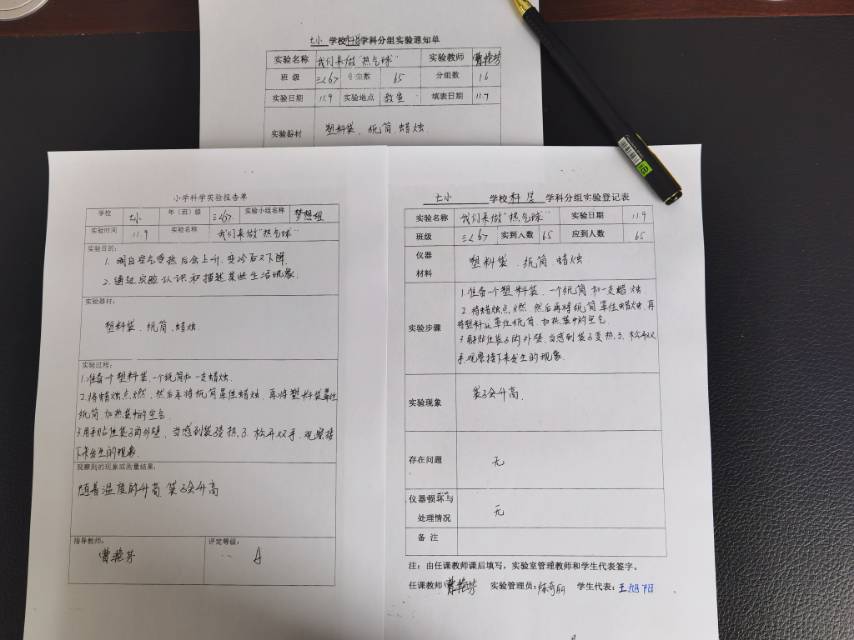 七小 学校科学学科分组实验通知单
实验名称 我们来做"热气球" 实验教师 曹艳芳
班级 三、6、7 学生数 65 分组数 16
实验日期 11.9 实验地点 教室 填表日期 11.7
实验器材 塑料袋、纸筒、蜡烛
小学科学实验报告单
学校 七小 年(班)级 三、6、7 实验小组名称 梦想组
实验时间 11.9 实验名称 我们来做"热气球"
实验目的:
1. 明白空气受热后会上升,变冷后又下降
2. 通过实验认识和描述某些生活现象.
实验器材:
塑料袋、纸筒、蜡烛.
实验过程:
1.准备一个塑料袋、一个纸筒和一支蜡烛.
2.将蜡烛点燃,然后再将纸筒罩住蜡烛,再将塑料袋罩住
纸筒,加热袋中的空气
3.用手贴住袋子的外壁,当感到袋子变热了,松开双手,观察接
下来发生的现象.
观察到的现象或测量结果:
随着温度的升高 袋子会升高
指导教师: 评定等级:
曹艳芳 A
七小 学校 科学 学科分组实验登记表
实验名称 我们来做"热气球" 实验日期 11.9
班级 三、6、7 实到人数 65 应到人数 65
仪器
材料
塑料袋、纸筒 蜡烛
实验步骤
1.准备一个塑料袋、一个纸筒和一支蜡烛
2.将蜡烛点燃 然后再将纸筒罩住蜡烛,再
将塑料袋罩住纸筒,加热袋中的空气
3.用手贴住袋子的外壁,当感到袋子变热了,松开双
手,观察接下来发生的现象.
实验现象 袋子会升高.
存在问题 无
仪器损坏与
处理情况
无
备注
注:由任课教师课后填写,实验室管理教师和学生代表签字。
任课教师 曹艳芳 实验管理员: 学生代表:王旭阳